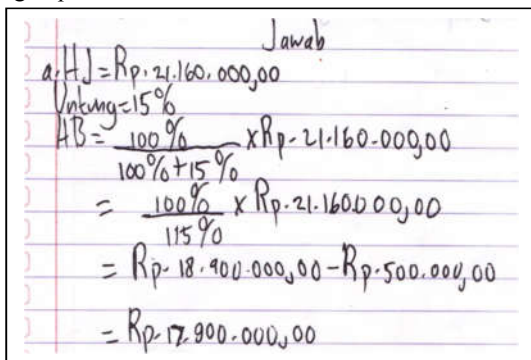 Jawab
a. HJ = Rp. 21.160.000,00
Untung = 15%
HB = 100% / 100% + 15% x Rp. 21.160.000,00
= 100% / 115% x Rp. 21.160.000,00
= Rp. 18.400.000,00 - Rp. 500.000,00
= Rp. 17.900.000,00